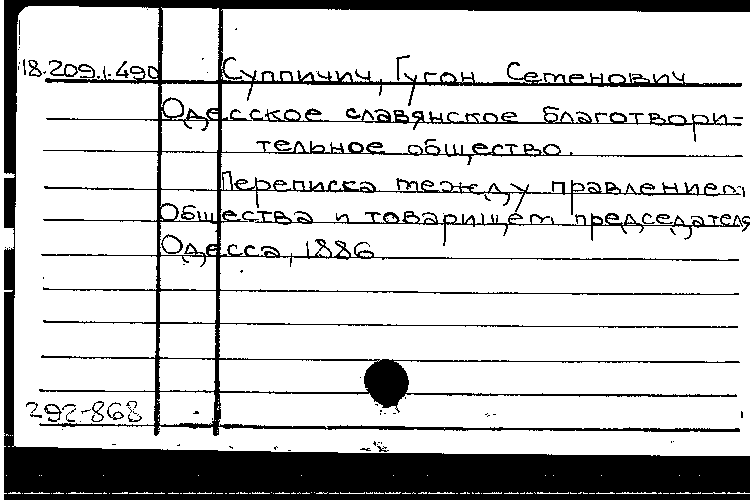 18.209.1.490 Суппичич, Гугон Семенович
Одесское славянское благотвори-
тельное общество.
Переписка между правлением
Общества и товарищем председателя
Одесса, 1886
292-868